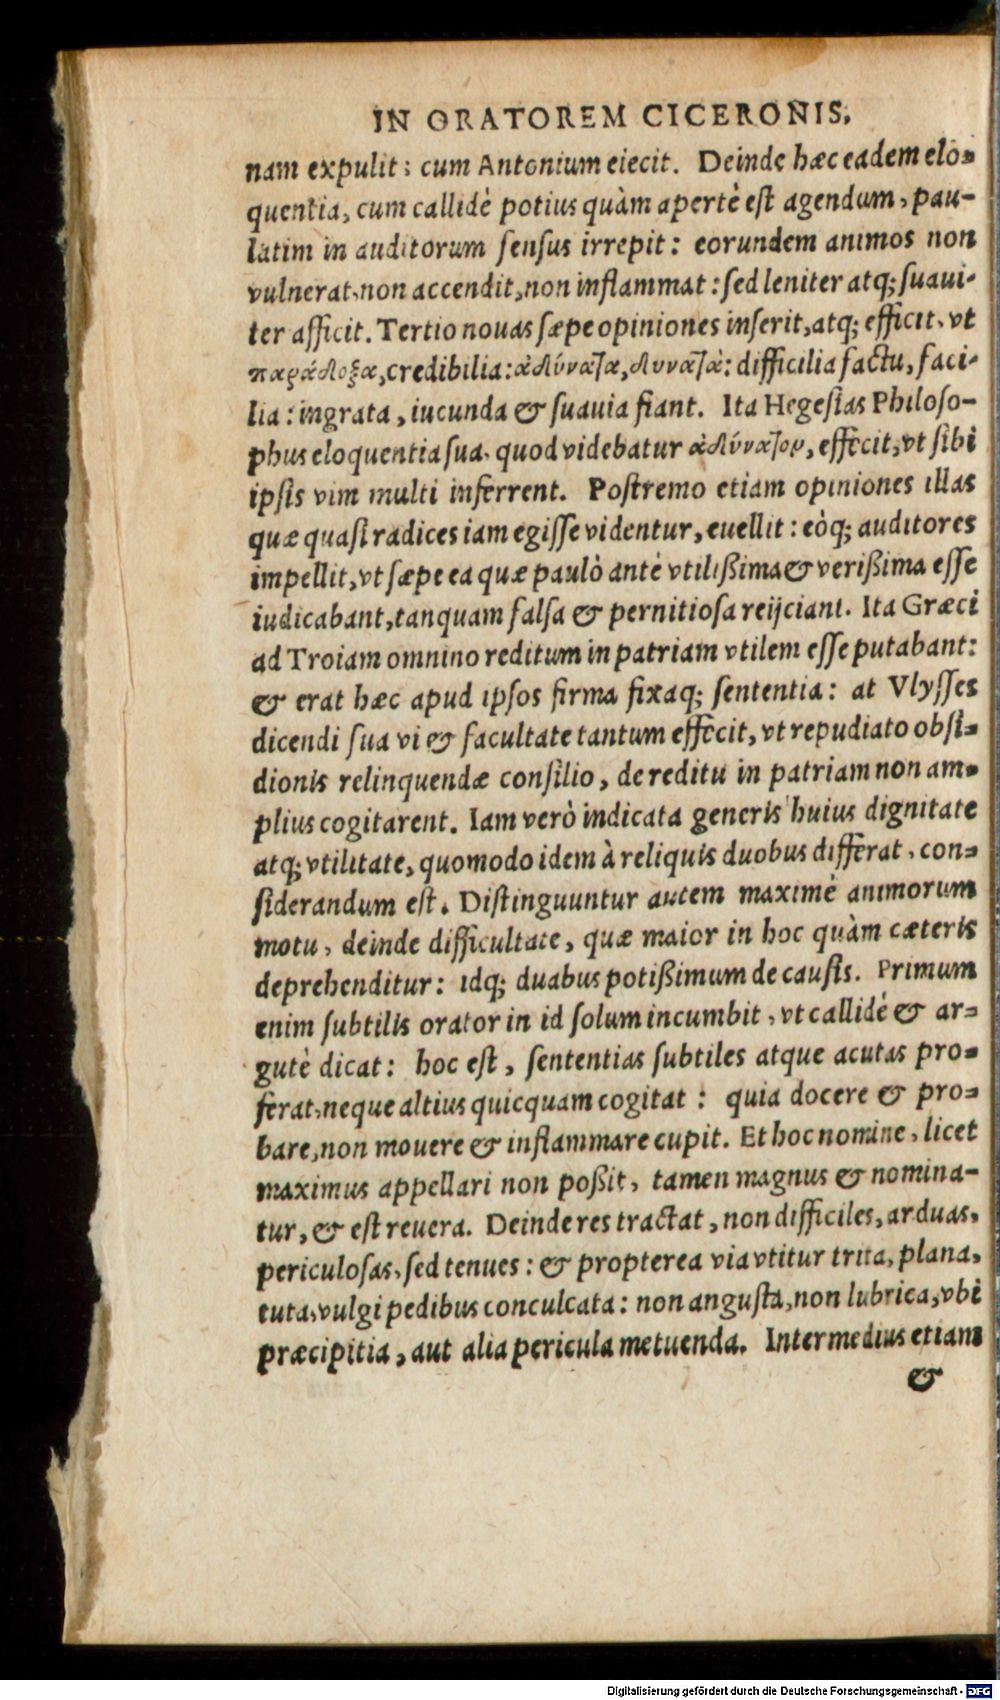 IN ORATOREM CICERONIS.
nam expulit: cum Antonium eiecit. Deinde hæc eadem elo-
quentia, cum callidè potius quàm apertè est agendum, pau-
latim in auditorum sensus irrepit: eorundem animos non
vulnerat, non accendit, non inflammat: sed leniter atq; suaui-
ter afficit. Tertio nouas sæpe opiniones inserit, atq; efficit, vt
παράδοξα, credibilia: ἀδύνατα, δυνατὰ: difficilia factu, faci-
lia: ingrata, iucunda & suauia fiant. Ita Hegesias Philoso-
phus eloquentia sua, quod videbatur ἀδύνατον, effecit, vt sibi
ipsis vim multi inferrent. Postremo etiam opiniones illas
quæ quasi radices iam egisse videntur, euellit: eòq; auditores
impellit, vt sæpe ea quæ paulò antè vtilißima & verißima esse
iudicabant, tanquam falsa & pernitiosa reijciant. Ita Græci
ad Troiam omnino reditum in patriam vtilem esse putabant:
& erat hæc apud ipsos firma fixaq; sententia: at Vlysses
dicendi sua vi & facultate tantum effecit, vt repudiato obsi-
dionis relinquendæ consilio, de reditu in patriam non am-
plius cogitarent. Iam verò indicata generis huius dignitate
atq; vtilitate, quomodo idem à reliquis duobus differat, con-
siderandum est. Distinguuntur autem maximè animorum
motu, deinde difficultate, quæ maior in hoc quàm cæteris
deprehenditur: idq; duabus potißimum de causis. Primum
enim subtilis orator in id solum incumbit, vt callidè & ar-
gutè dicat: hoc est, sententias subtiles atque acutas pro-
ferat, neque altius quicquam cogitat: quia docere & pro-
bare, non mouere & inflammare cupit. Et hoc nomine, licet
maximus appellari non poßit, tamen magnus & nomina-
tur, & est reuera. Deinde res tractat, non difficiles, arduas,
periculosas, sed tenues: & propterea via vtitur trita, plana,
tuta, vulgi pedibus conculcata: non angusta, non lubrica, vbi
præcipitia, aut alia pericula metuenda. Intermedius etiam
&
Digitalisierung gefördert durch die Deutsche Forschungsgemeinschaft - DFG